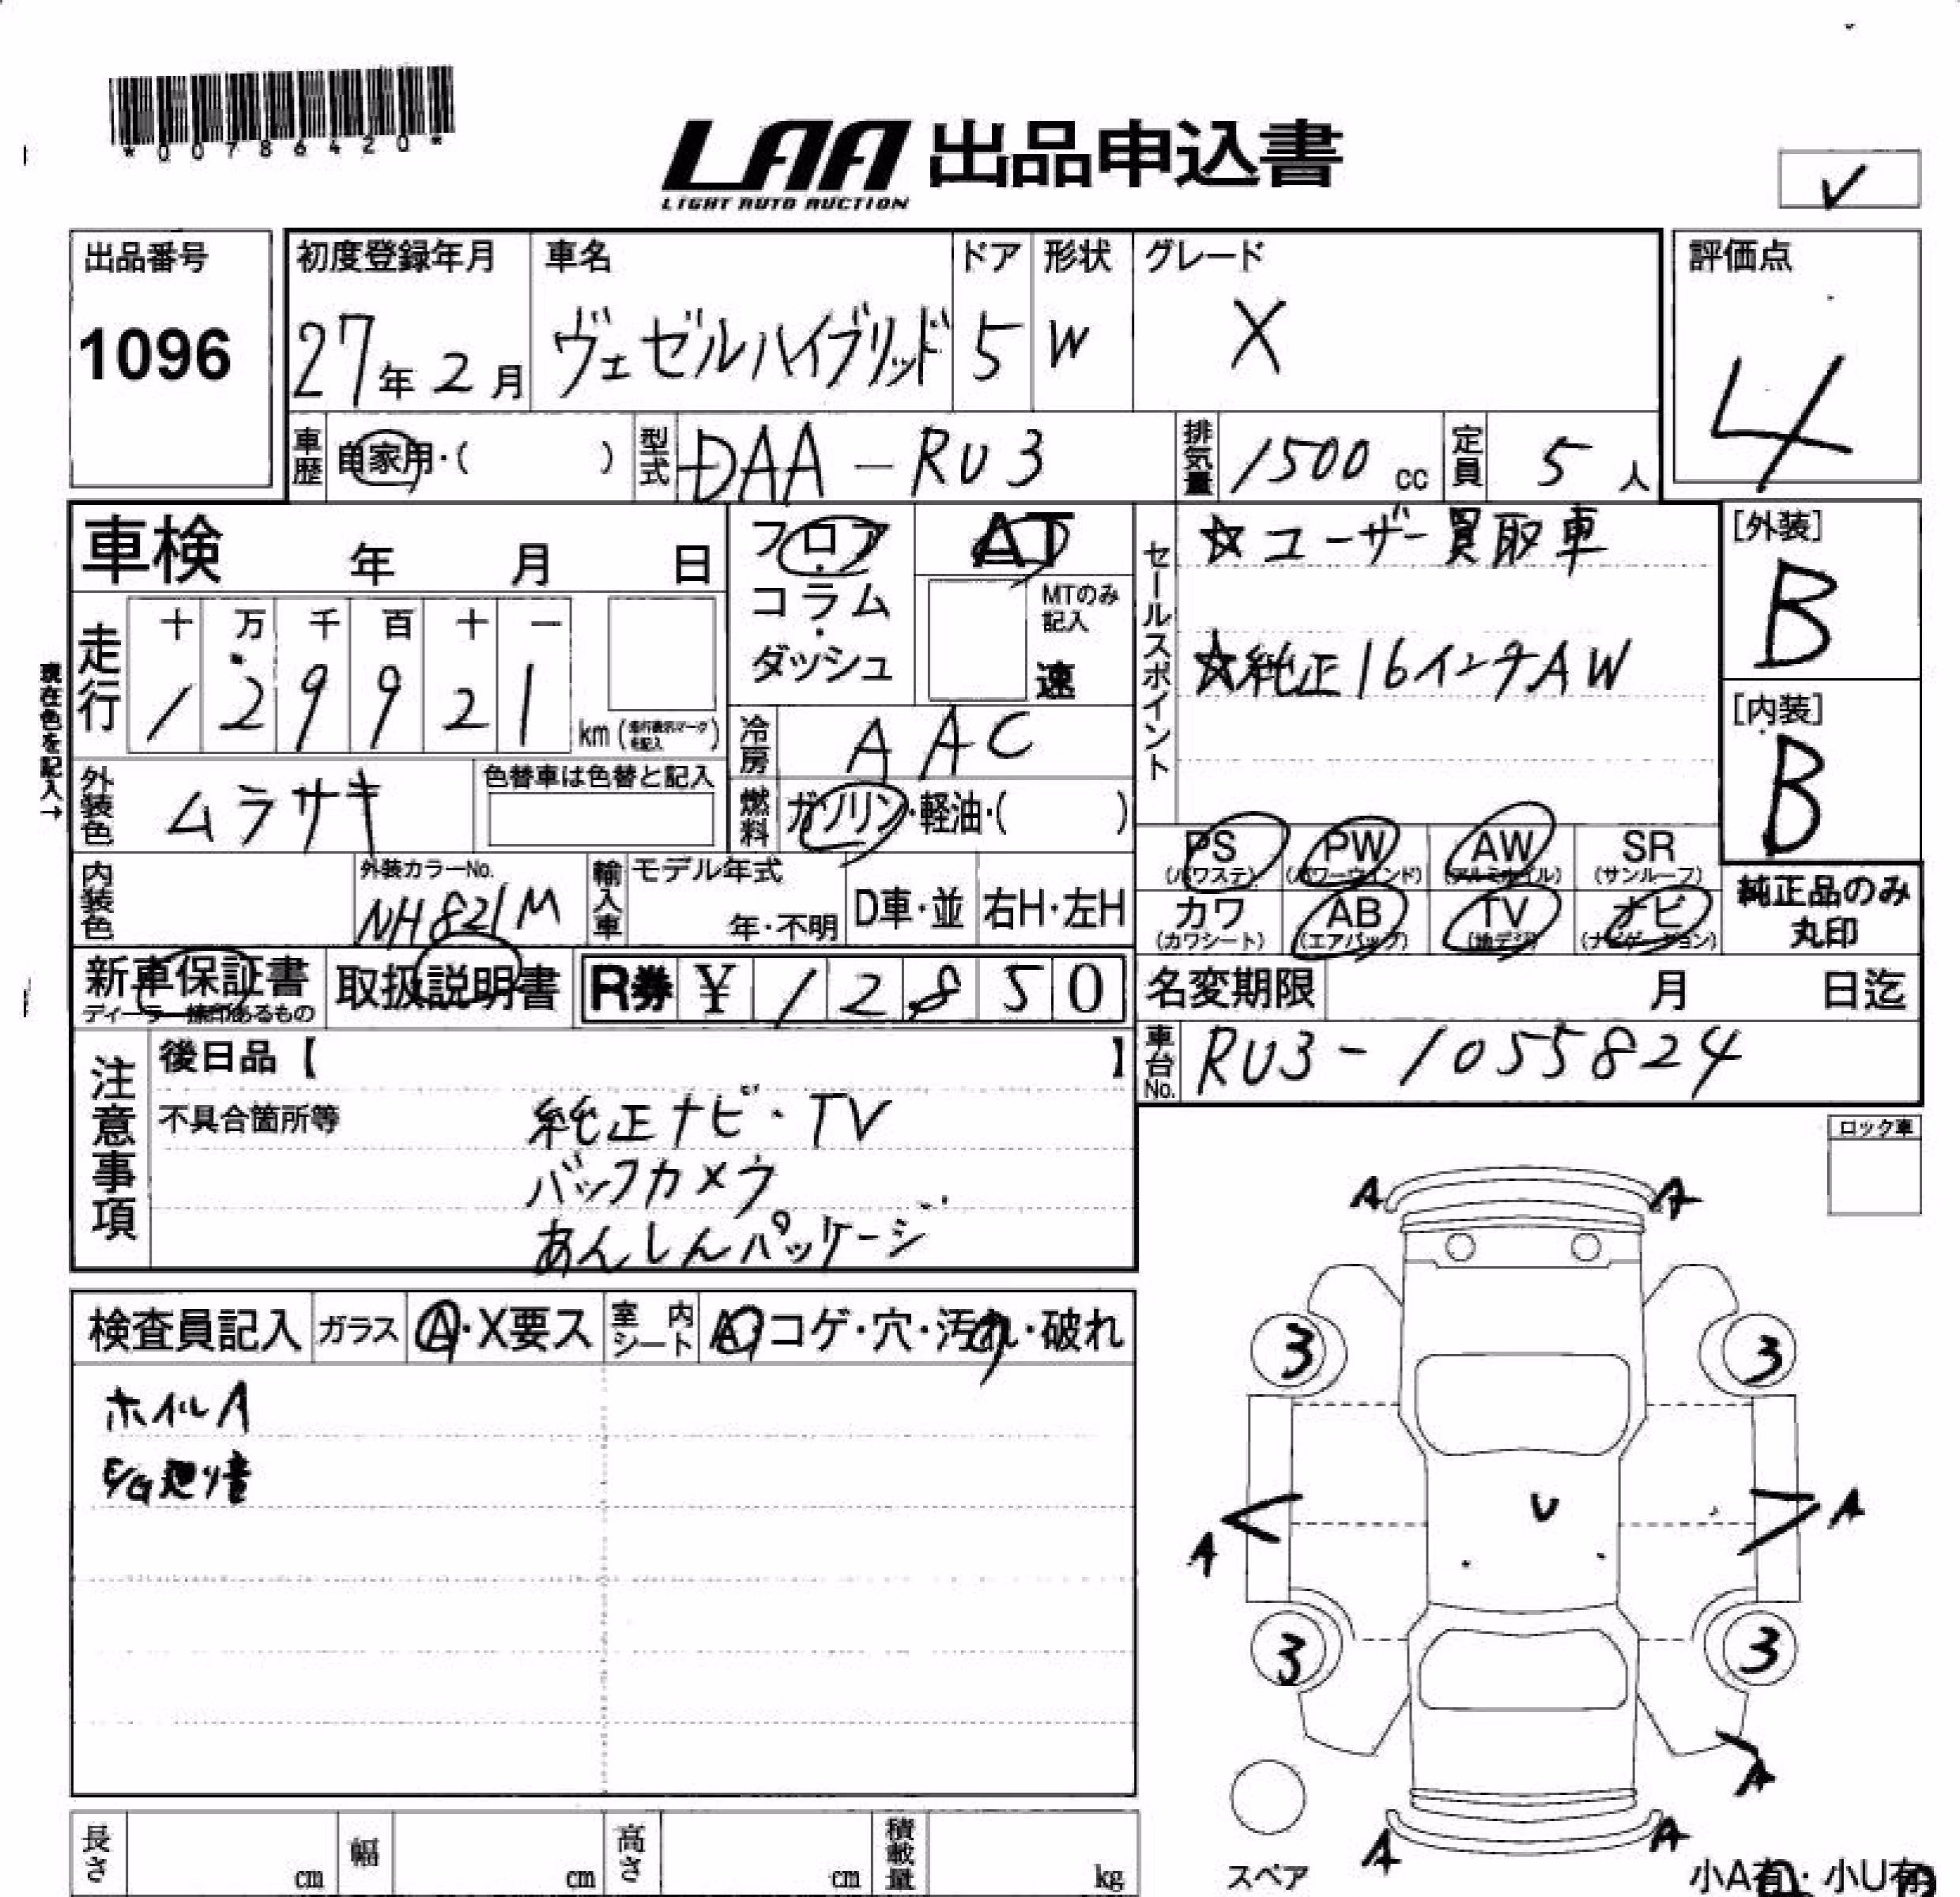 *00786420*
LAA 出品申込書
LIGHT AUTO AUCTION
✓
出品番号
1096
初度登録年月
27年2月
車名
ヴェゼルハイブリッド
ドア
5
形状
W
グレード
X
評価点
4
車歴 自家用・( )
型式 DAA-RU3
排気量 1500 cc
定員 5 人
車検 年 月 日
フロア・コラム・ダッシュ
AT
MTのみ記入
速
セールスポイント
☆ユーザー買取車
☆純正16インチAW
[外装]
B
[内装]
B
現在色を記入→
走行
十 万 千 百 十 一
1 2 9 9 2 1 km
冷房 AAC
外装色 ムラサキ
色替車は色替と記入
燃料 ガソリン・軽油・( )
PS (パワステ) PW (パワーウインド) AW (アルミホイル) SR (サンルーフ)
カワ (カワシート) AB (エアバッグ) TV (地デジ) ナビ (ナビゲーション)
純正品のみ丸印
内装色
外装カラーNo.
NH821M
輸入車 モデル年式
年・不明
D車・並
右H・左H
新車保証書
ディーラー捺印あるもの
取扱説明書
R券 ¥ 12850
名変期限 月 日迄
車台No. RU3-1055824
注意事項
後日品【 】
不具合箇所等
純正ナビ・TV
バックカメラ
あんしんパッケージ
ロック車
検査員記入 ガラス A・X要ス 室内シート A・コゲ・穴・汚れ・破れ
ホイルA
E/G廻り音
A A
3 3
A U A
3 3
A
A A
スペア
小A有・小U有
長さ cm 幅 cm 高さ cm 積載量 kg